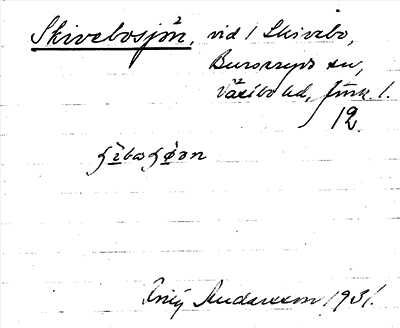 Skivebosjön, vid 1 Skivebo,
Burseryds sn,
Västbo hd, Jönk. l.
12.
Andersson 1931.